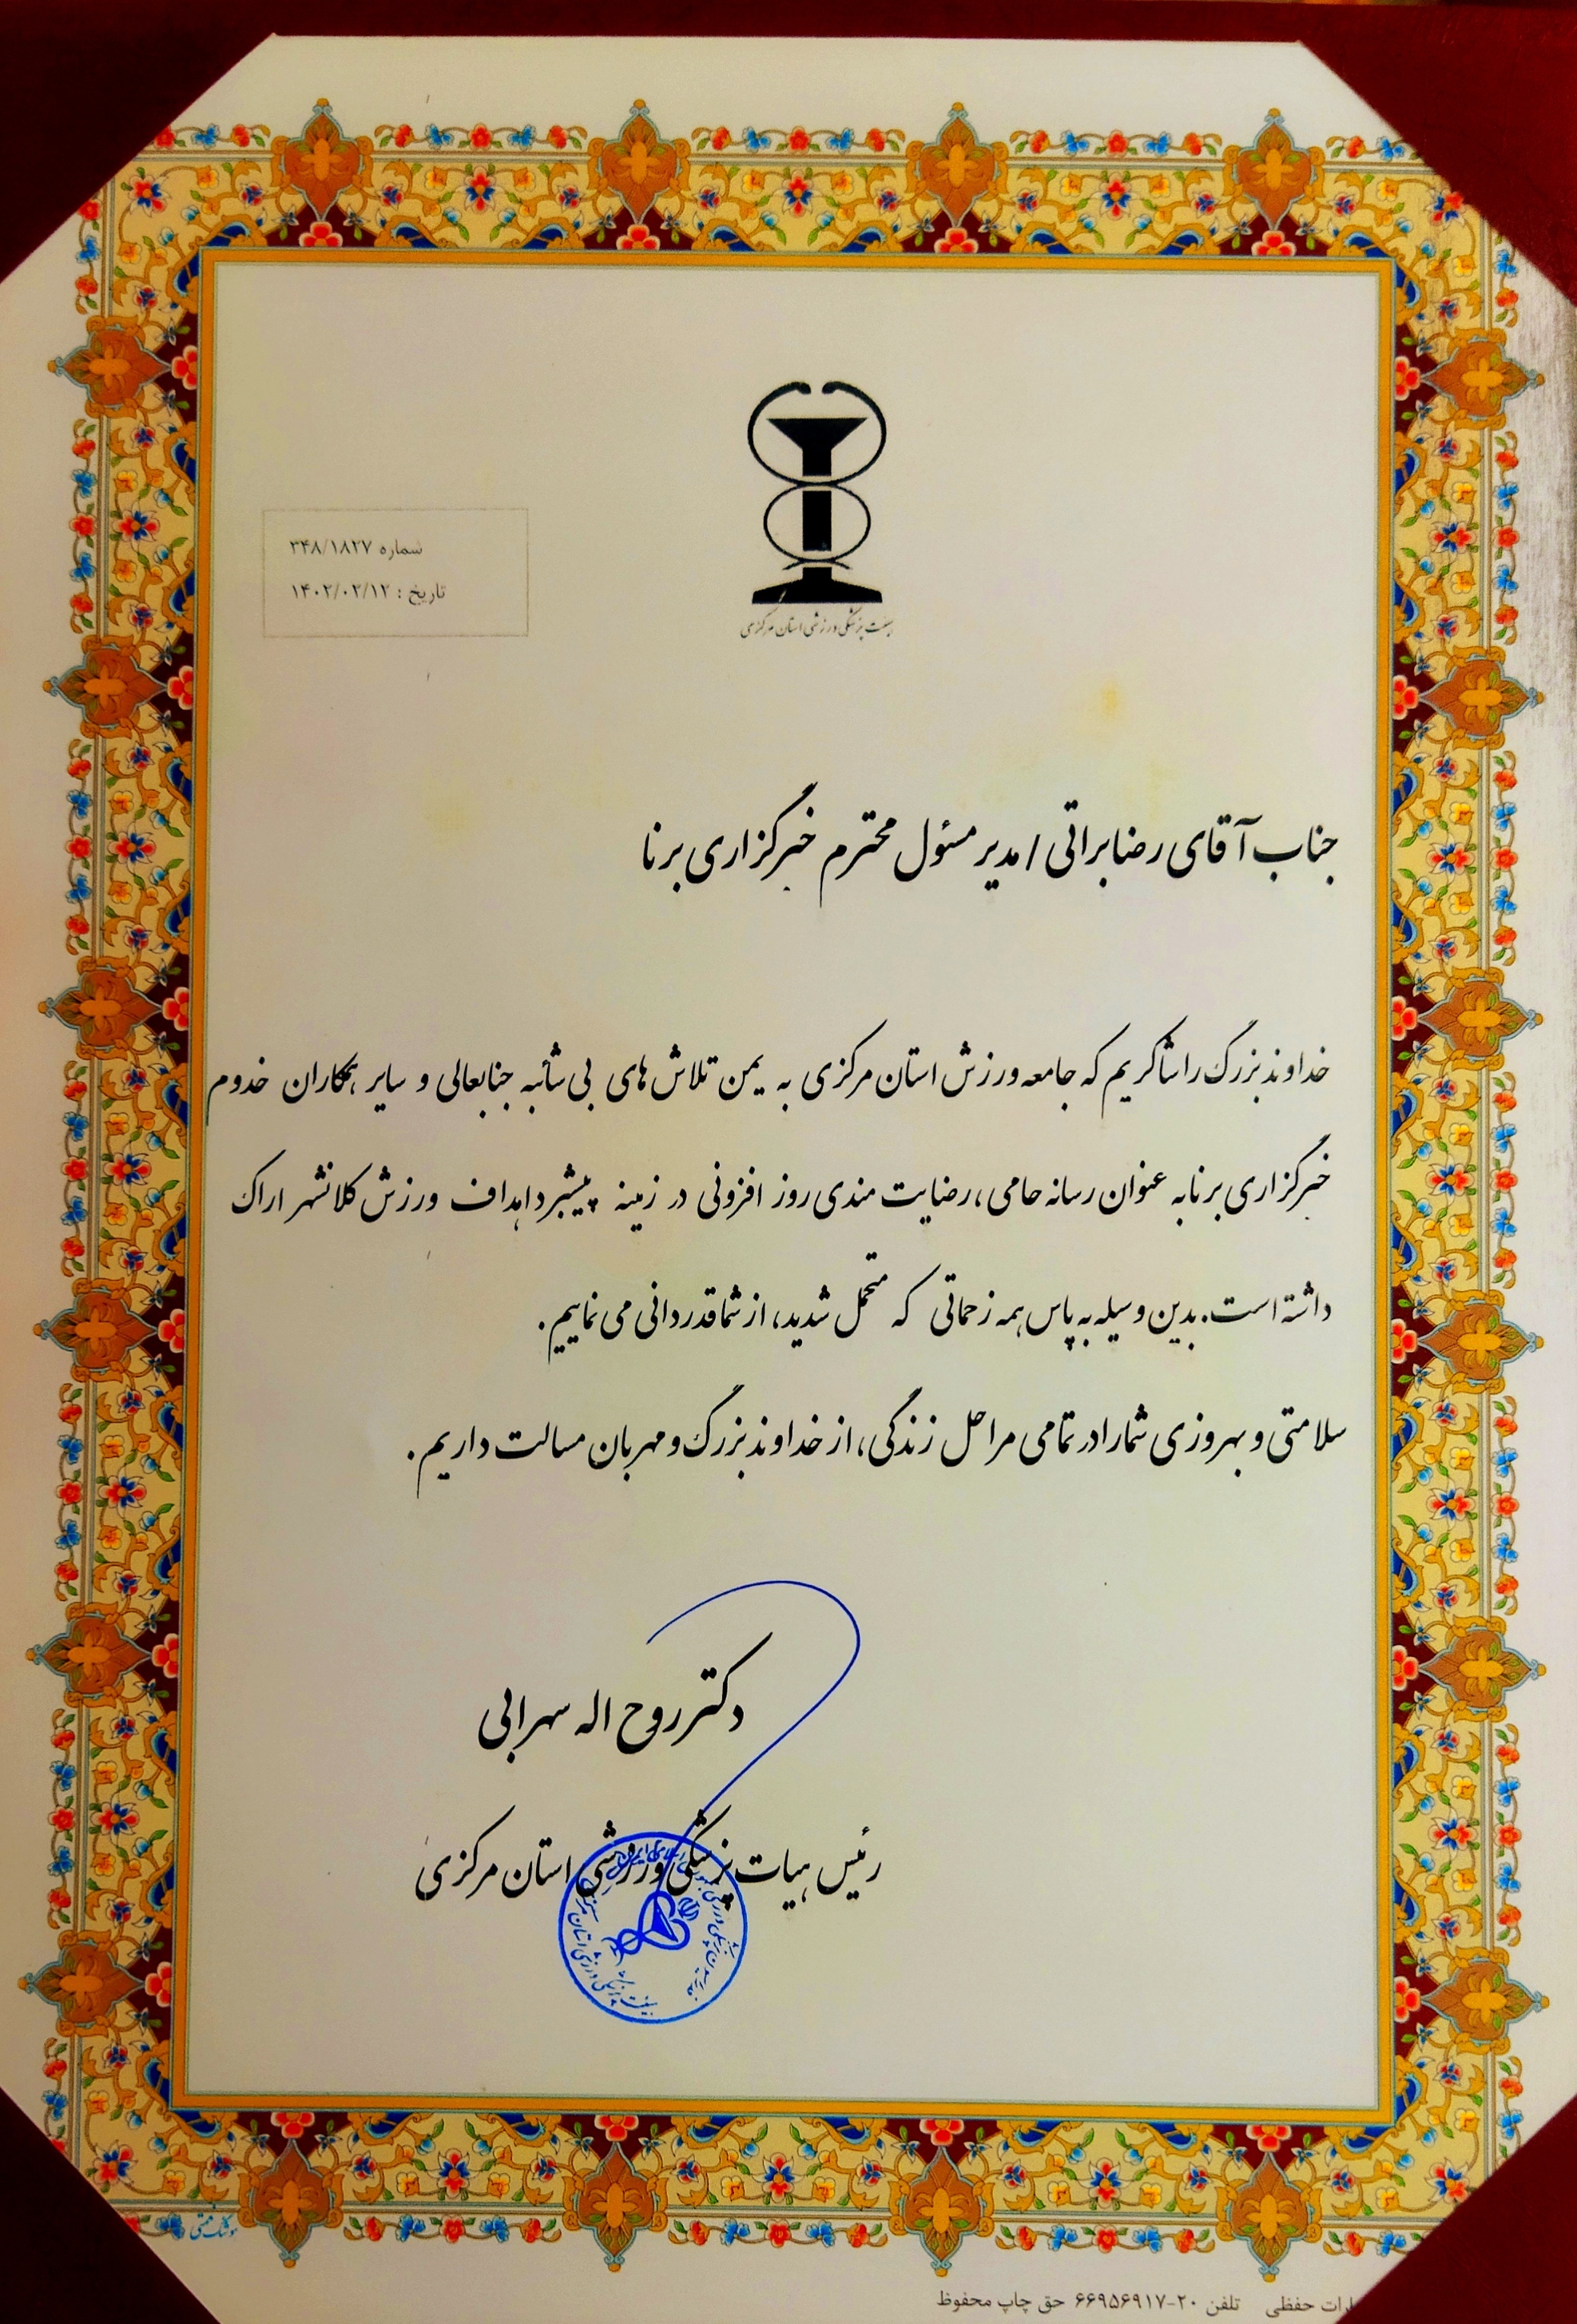 شماره ۳۴۸/۱۸۲۷
تاریخ : ۱۴۰۲/۰۲/۱۲
هیئت پزشکی ورزشی استان مرکزی
جناب آقای رضا براتی / مدیر مسئول محترم خبرگزاری برنا
خداوند بزرگ را شاکریم که جامعه ورزش استان مرکزی به یمن تلاش های بی شائبه جنابعالی و سایر همکاران خدوم
خبرگزاری برنا به عنوان رسانه حامی، رضایت مندی روز افزونی در زمینه پیشبرد اهداف ورزش کلانشهر اراک
داشته است. بدین وسیله به پاس همه زحماتی که متحمل شدید، از شما قدردانی می نماییم.
سلامتی و بهروزی شما را در تمامی مراحل زندگی، از خداوند بزرگ و مهربان مسالت داریم.
دکتر روح اله سهرابی
رئیس هیات پزشکی ورزشی استان مرکزی
هیئت پزشکی ورزشی استان مرکزی
حفظی تلفن ۲۰-۶۶۹۵۶۹۱۷ حق چاپ محفوظ